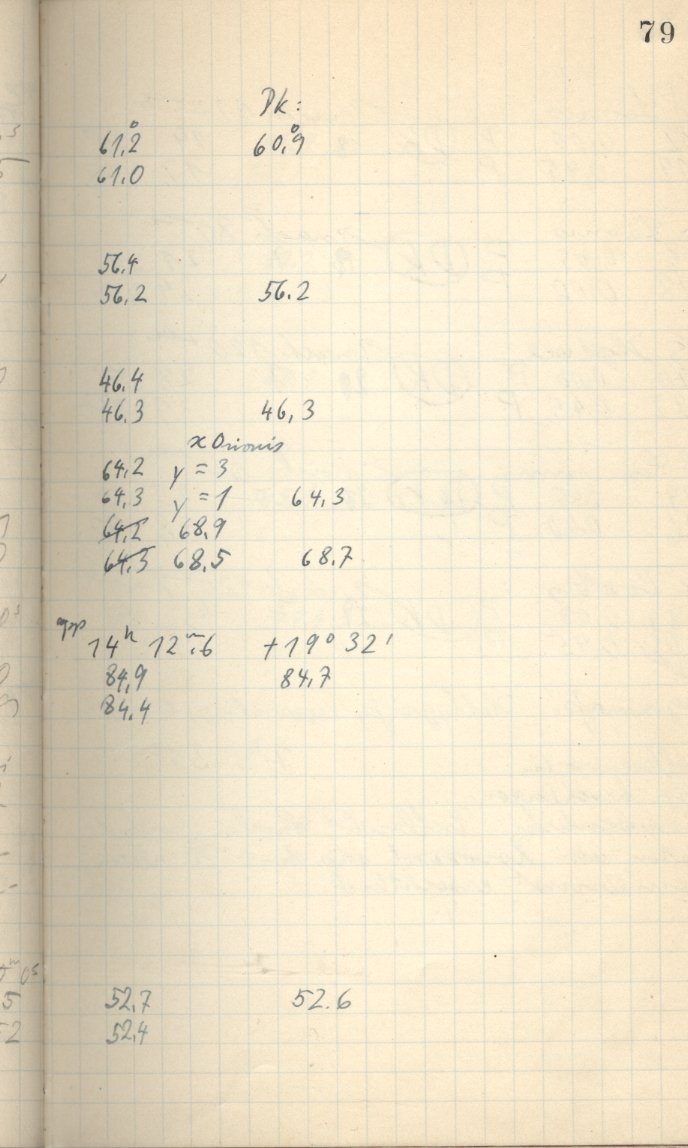 79
Dk:
61,2° 60,9°
61.0
56.4
56.2 56.2
46.4
46.3 46,3
x Orionis
64,2 y = 3
64,3 y = 1 64,3
64,2 68.9
64,3 68,5 68.7
14h 12m.6 +19° 32'
84,9 84,7
84.4
52,7 52.6
52,4